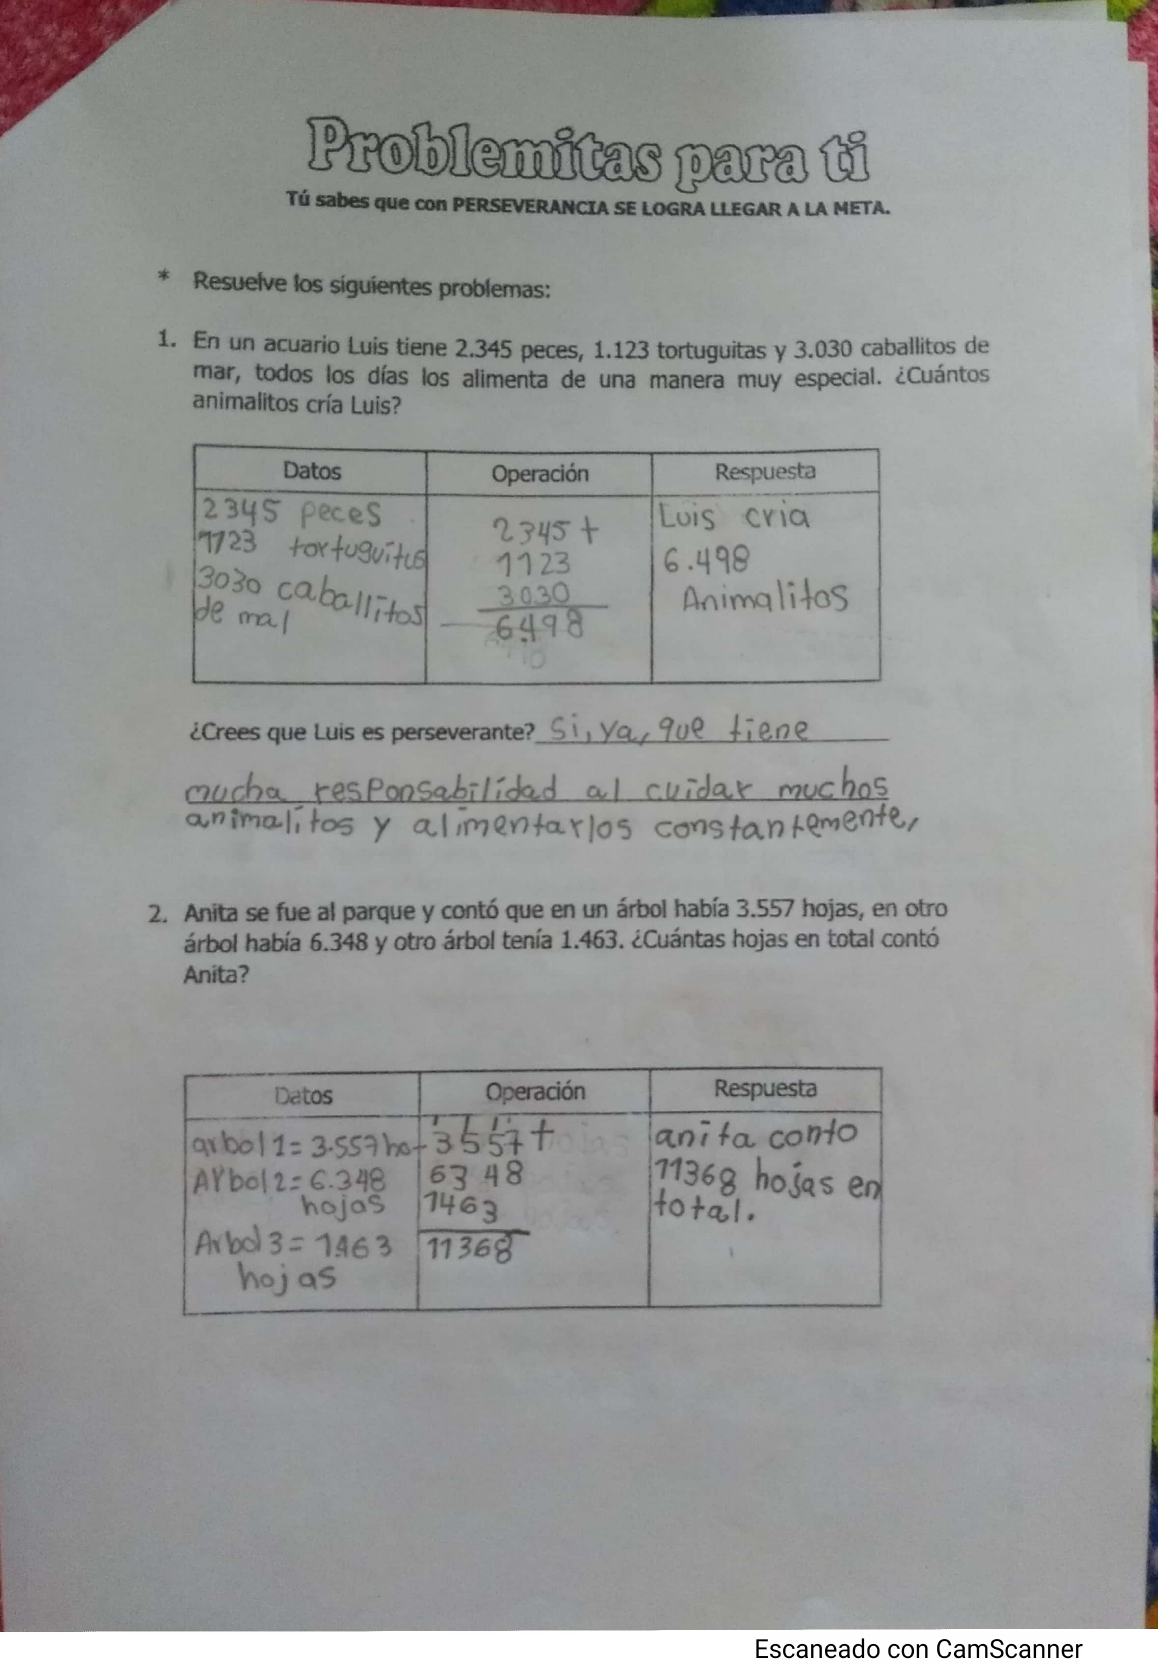 Problemitas para ti
Tú sabes que con PERSEVERANCIA SE LOGRA LLEGAR A LA META.
* Resuelve los siguientes problemas:
1. En un acuario Luis tiene 2.345 peces, 1.123 tortuguitas y 3.030 caballitos de
mar, todos los días los alimenta de una manera muy especial. ¿Cuántos
animalitos cría Luis?
Datos Operación Respuesta
2345 peces
1123 tortuguitas
3030 caballitos
de mal
2345 +
1123
3030
6498
Luis cria
6.498
Animalitos
¿Crees que Luis es perseverante? Si, ya, que tiene
mucha responsabilidad al cuidar muchos
animalitos y alimentarlos constantemente,
2. Anita se fue al parque y contó que en un árbol había 3.557 hojas, en otro
árbol había 6.348 y otro árbol tenía 1.463. ¿Cuántas hojas en total contó
Anita?
Datos Operación Respuesta
arbol 1= 3.557 ho
Arbol 2= 6.348
hojas
Arbol 3= 1.463
hojas
1 1 1
3557+
6348
1463
11368
anita conto
11368 hojas en
total.
Escaneado con CamScanner